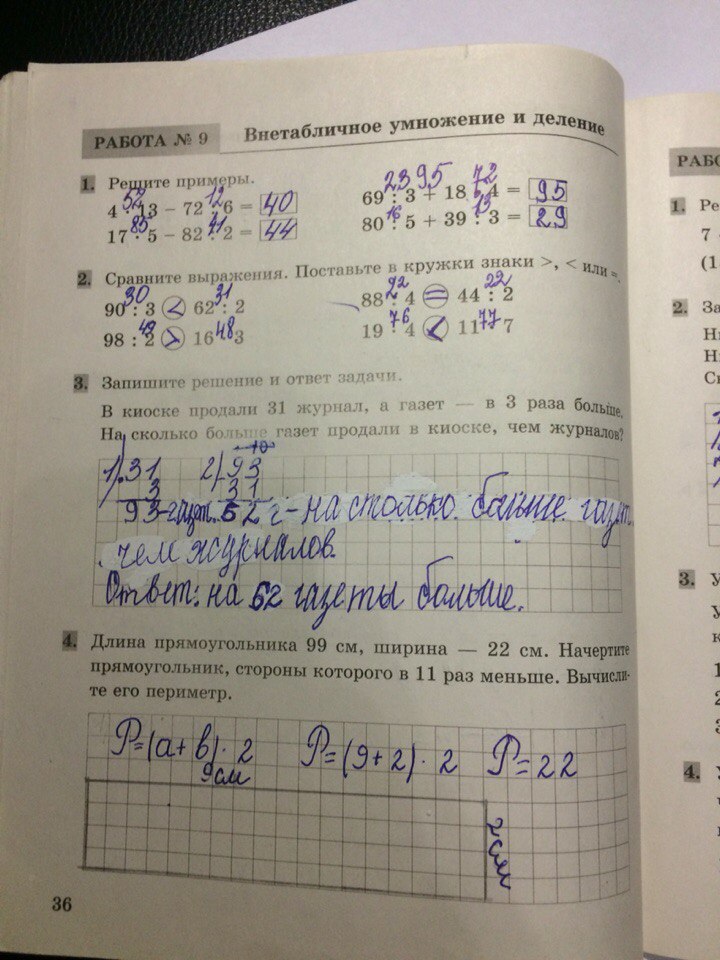 РАБОТА № 9
Внетабличное умножение и деление
1. Решите примеры.
52 12
4 · 13 – 72 : 6 = 40
23 95 72
69 : 3 + 18 · 4 = 95
85 41
17 · 5 – 82 : 2 = 44
16 13
80 : 5 + 39 : 3 = 29
2. Сравните выражения. Поставьте в кружки знаки >, < или =.
30 31
90 : 3 < 62 : 2
22 22
88 : 4 = 44 : 2
49 48
98 : 2 > 16 · 3
76 77
19 · 4 < 11 · 7
3. Запишите решение и ответ задачи.
В киоске продали 31 журнал, а газет — в 3 раза больше.
На сколько больше газет продали в киоске, чем журналов?
1) 31 2) 93
3 31
93-газет. 62 г - на столько больше газет
чем журналов.
Ответ: на 62 газеты больше.
4. Длина прямоугольника 99 см, ширина — 22 см. Начертите
прямоугольник, стороны которого в 11 раз меньше. Вычисли-
те его периметр.
P=(a+b)·2 P=(9+2)·2 P=22
9см
2см
36
РАБО
1. Ре
7
(1
2. За
Н
Н
Сн
3. У
У
к
1
2
3
4.